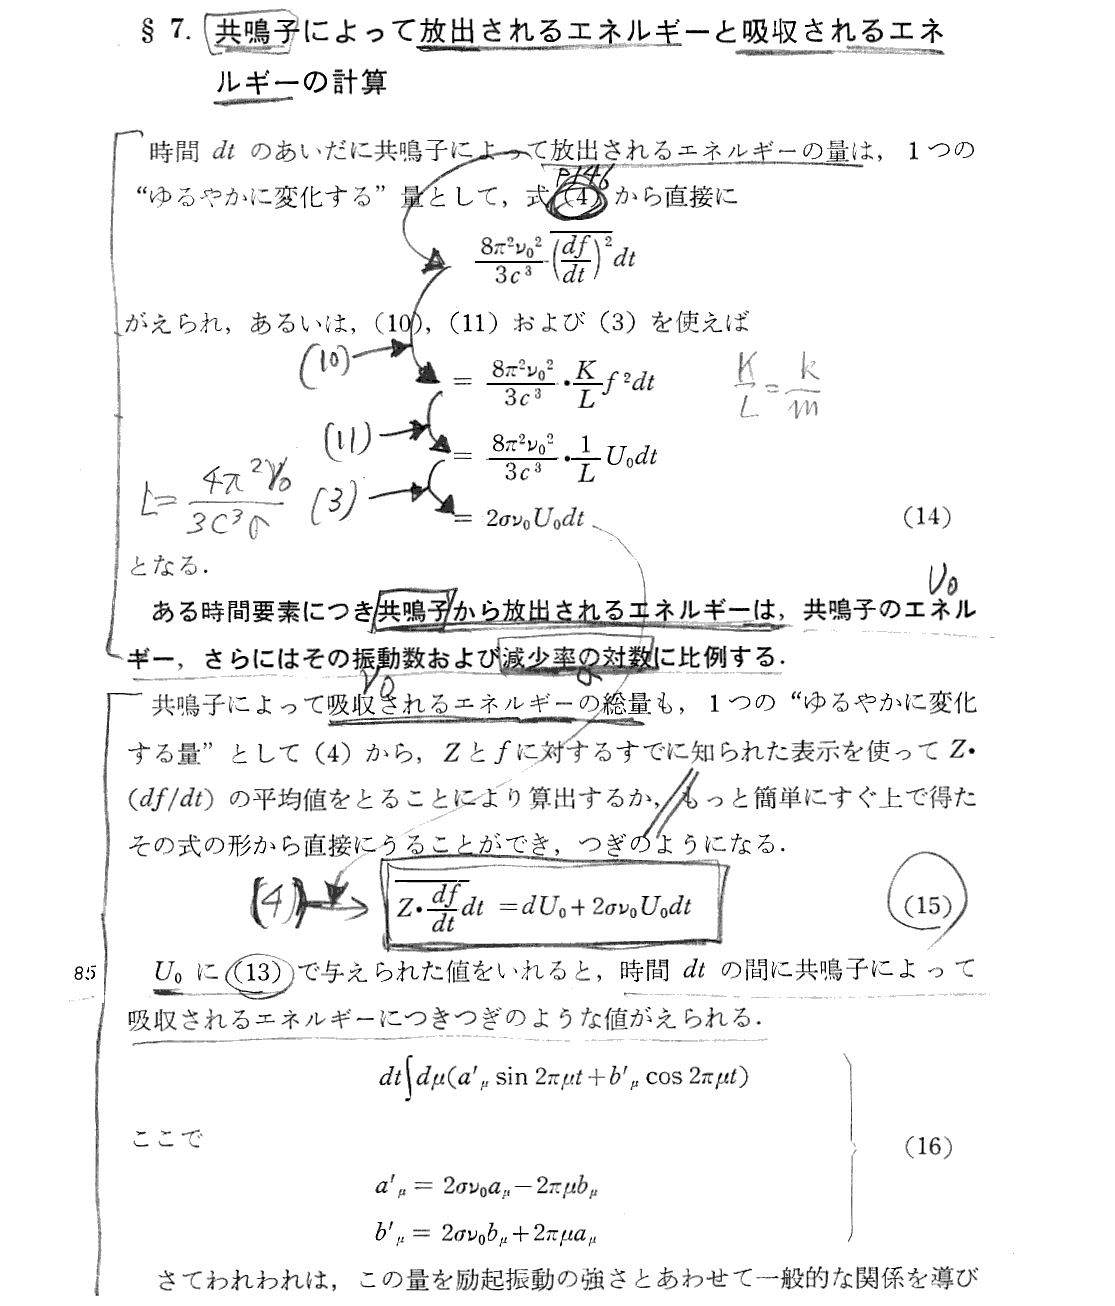 § 7. 共鳴子によって放出されるエネルギーと吸収されるエネ
ルギーの計算
時間 dt のあいだに共鳴子によって放出されるエネルギーの量は，1つの
P146
“ゆるやかに変化する” 量として，式 (4) から直接に
8π²ν₀²/3c³ · \overline{(df/dt)²} dt
がえられ，あるいは，(10)，(11) および (3) を使えば
(10) = 8π²ν₀²/3c³ · K/L f²dt K/L = k/m
(11) = 8π²ν₀²/3c³ · 1/L U₀dt
L = 4π²ν₀/3c³σ (3) = 2σν₀U₀dt (14)
となる．
U₀
ある時間要素につき共鳴子から放出されるエネルギーは，共鳴子のエネル
ギー，さらにはその振動数および減少率の対数に比例する．
ν₀ σ
共鳴子によって吸収されるエネルギーの総量も，1つの “ゆるやかに変化
する量” として (4) から，Z と f に対するすでに知られた表示を使って Z・
(df/dt) の平均値をとることにより算出するか，もっと簡単にすぐ上で得た
その式の形から直接にうることができ，つぎのようになる．
(4) \overline{Z・df/dt} dt = dU₀ + 2σν₀U₀dt (15)
85 U₀ に (13) で与えられた値をいれると，時間 dt の間に共鳴子によって
吸収されるエネルギーにつきつぎのような値がえられる．
dt∫dμ(a'μ sin 2πμt + b'μ cos 2πμt)
ここで (16)
a'μ = 2σν₀aμ − 2πμbμ
b'μ = 2σν₀bμ + 2πμaμ
さてわれわれは，この量を励起振動の強さとあわせて一般的な関係を導び